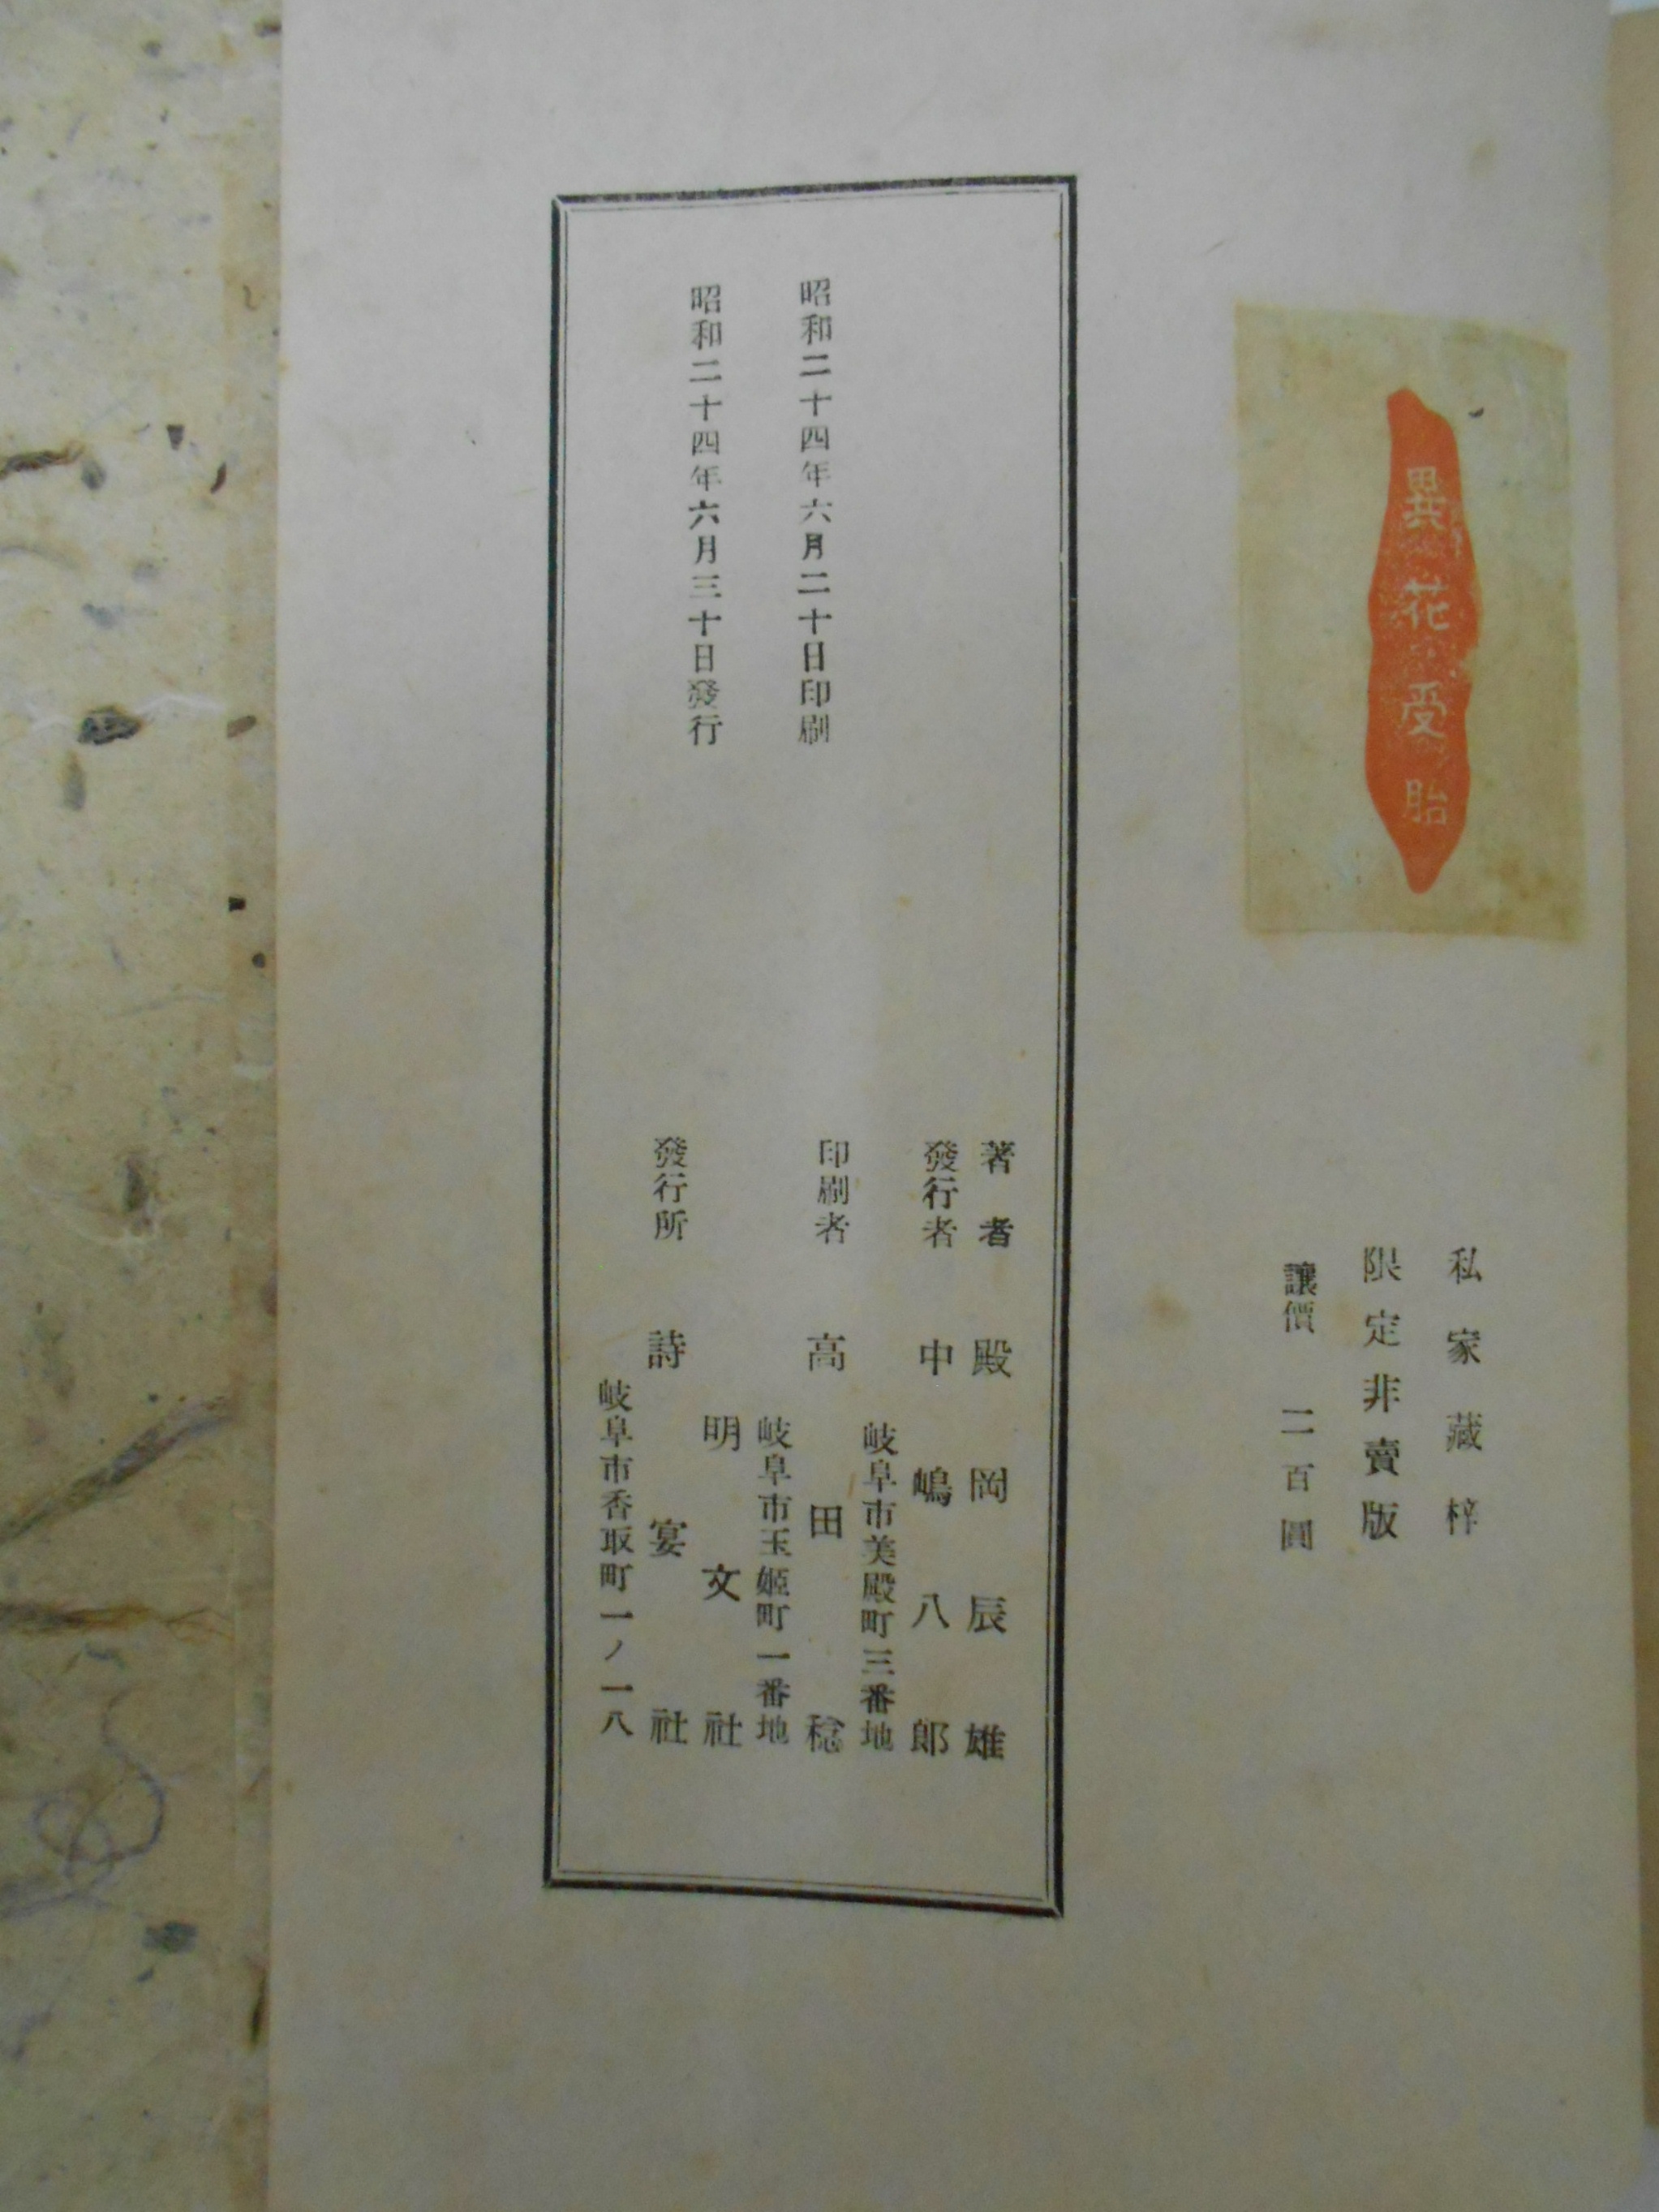 異花受胎
私家藏梓
限定非賣版
讓價 二百圓
著者 殿岡辰雄
發行者 中嶋八郎
岐阜市美殿町三番地
印刷者 高田稔
岐阜市玉姬町一番地
明文社
發行所 詩宴社
岐阜市香取町一ノ一八
昭和二十四年六月二十日印刷
昭和二十四年六月三十日發行